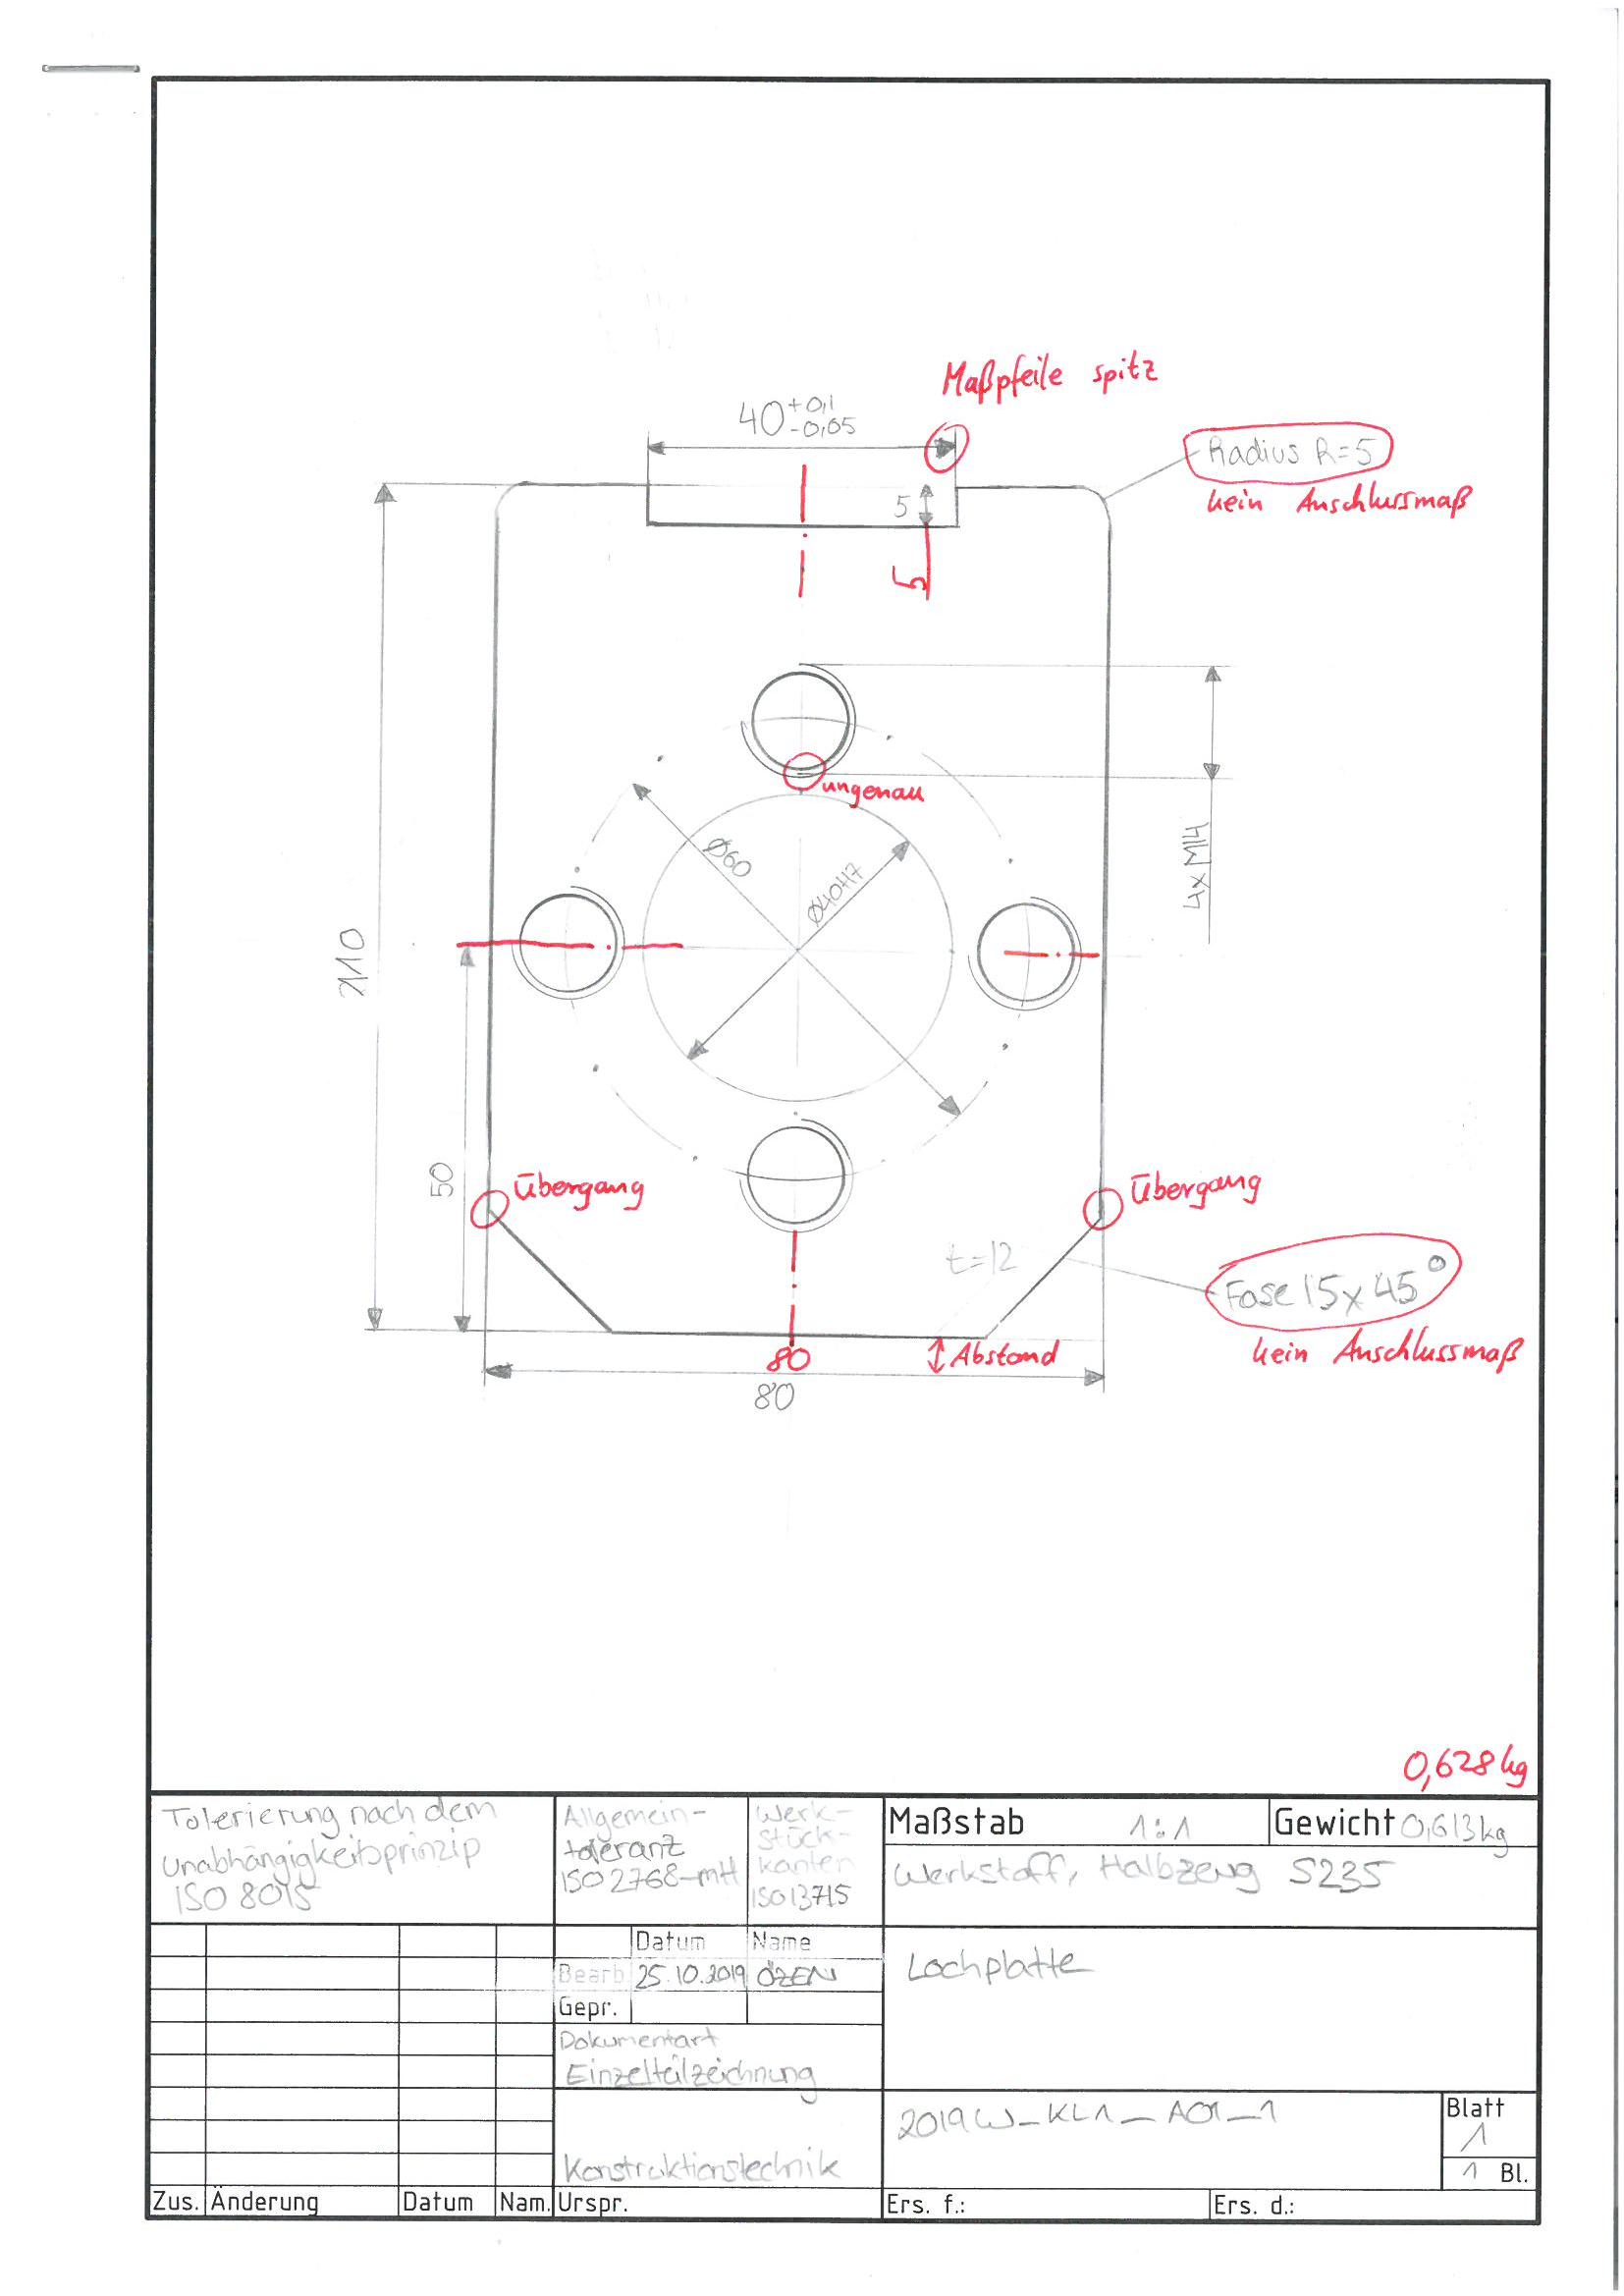 Maßpfeile spitz
40 +0,1
-0,05
Radius R=5
kein Anschlussmaß
5
5
ungenau
Ø60
Ø40H7
4xM14
110
50
Übergang
Übergang
t=12
Fase 15x45°
kein Anschlussmaß
80
Abstand
80
0,628kg
Tolerierung nach dem
Unabhängigkeitsprinzip
ISO 8015
Allgemein-
toleranz
ISO 2768-mH
Werk-
stück-
kanten
ISO13715
Maßstab 1:1
Gewicht 0,613kg
Werkstoff, Halbzeug S235
Datum Name
Bearb. 25.10.2019 ÖZEN
Gepr.
Lochplatte
Dokumentart
Einzelteilzeichnung
Konstruktionstechnik
2019W_KL1_A01_1
Blatt
1
1 Bl.
Zus. Änderung Datum Nam. Urspr. Ers. f.: Ers. d.: